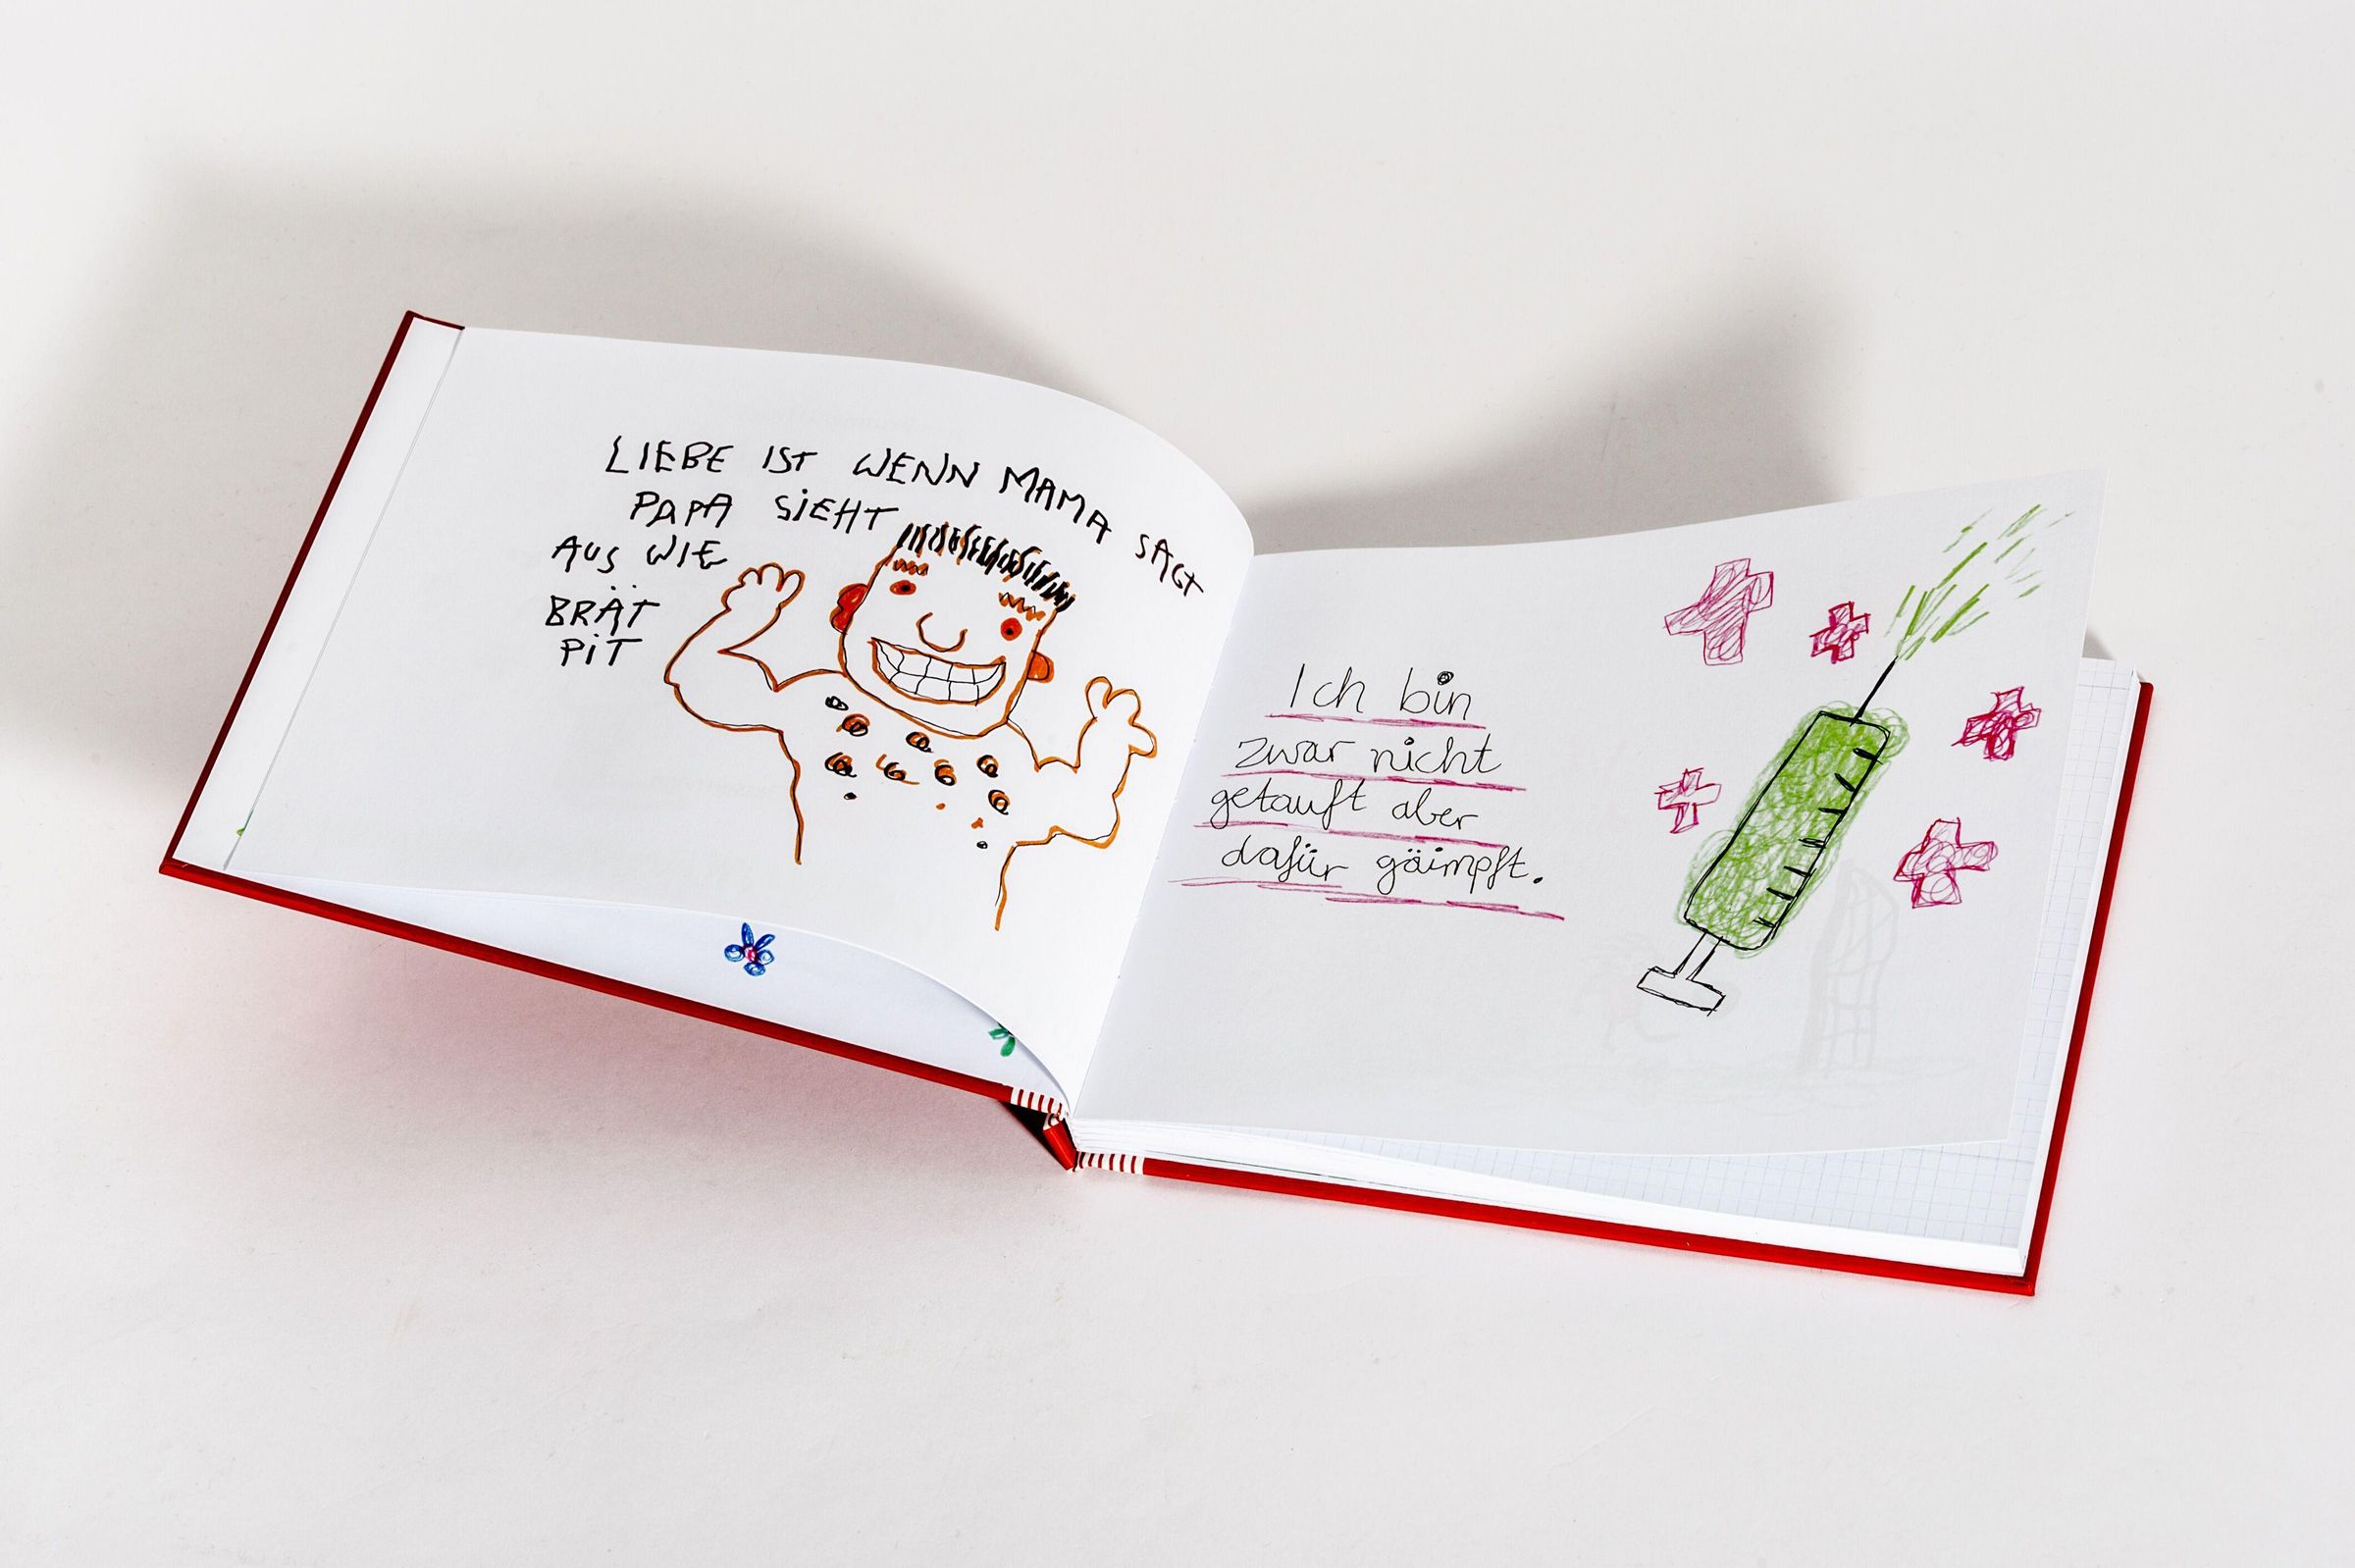 LIEBE IST WENN MAMA SAGT
PAPA SIEHT
AUS WIE
BRÄT
PIT
Ich bin
zwar nicht
getauft aber
dafür gäimpft.